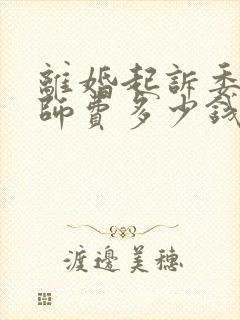 離婚起訴委
師費多少錢
渡邊美穗